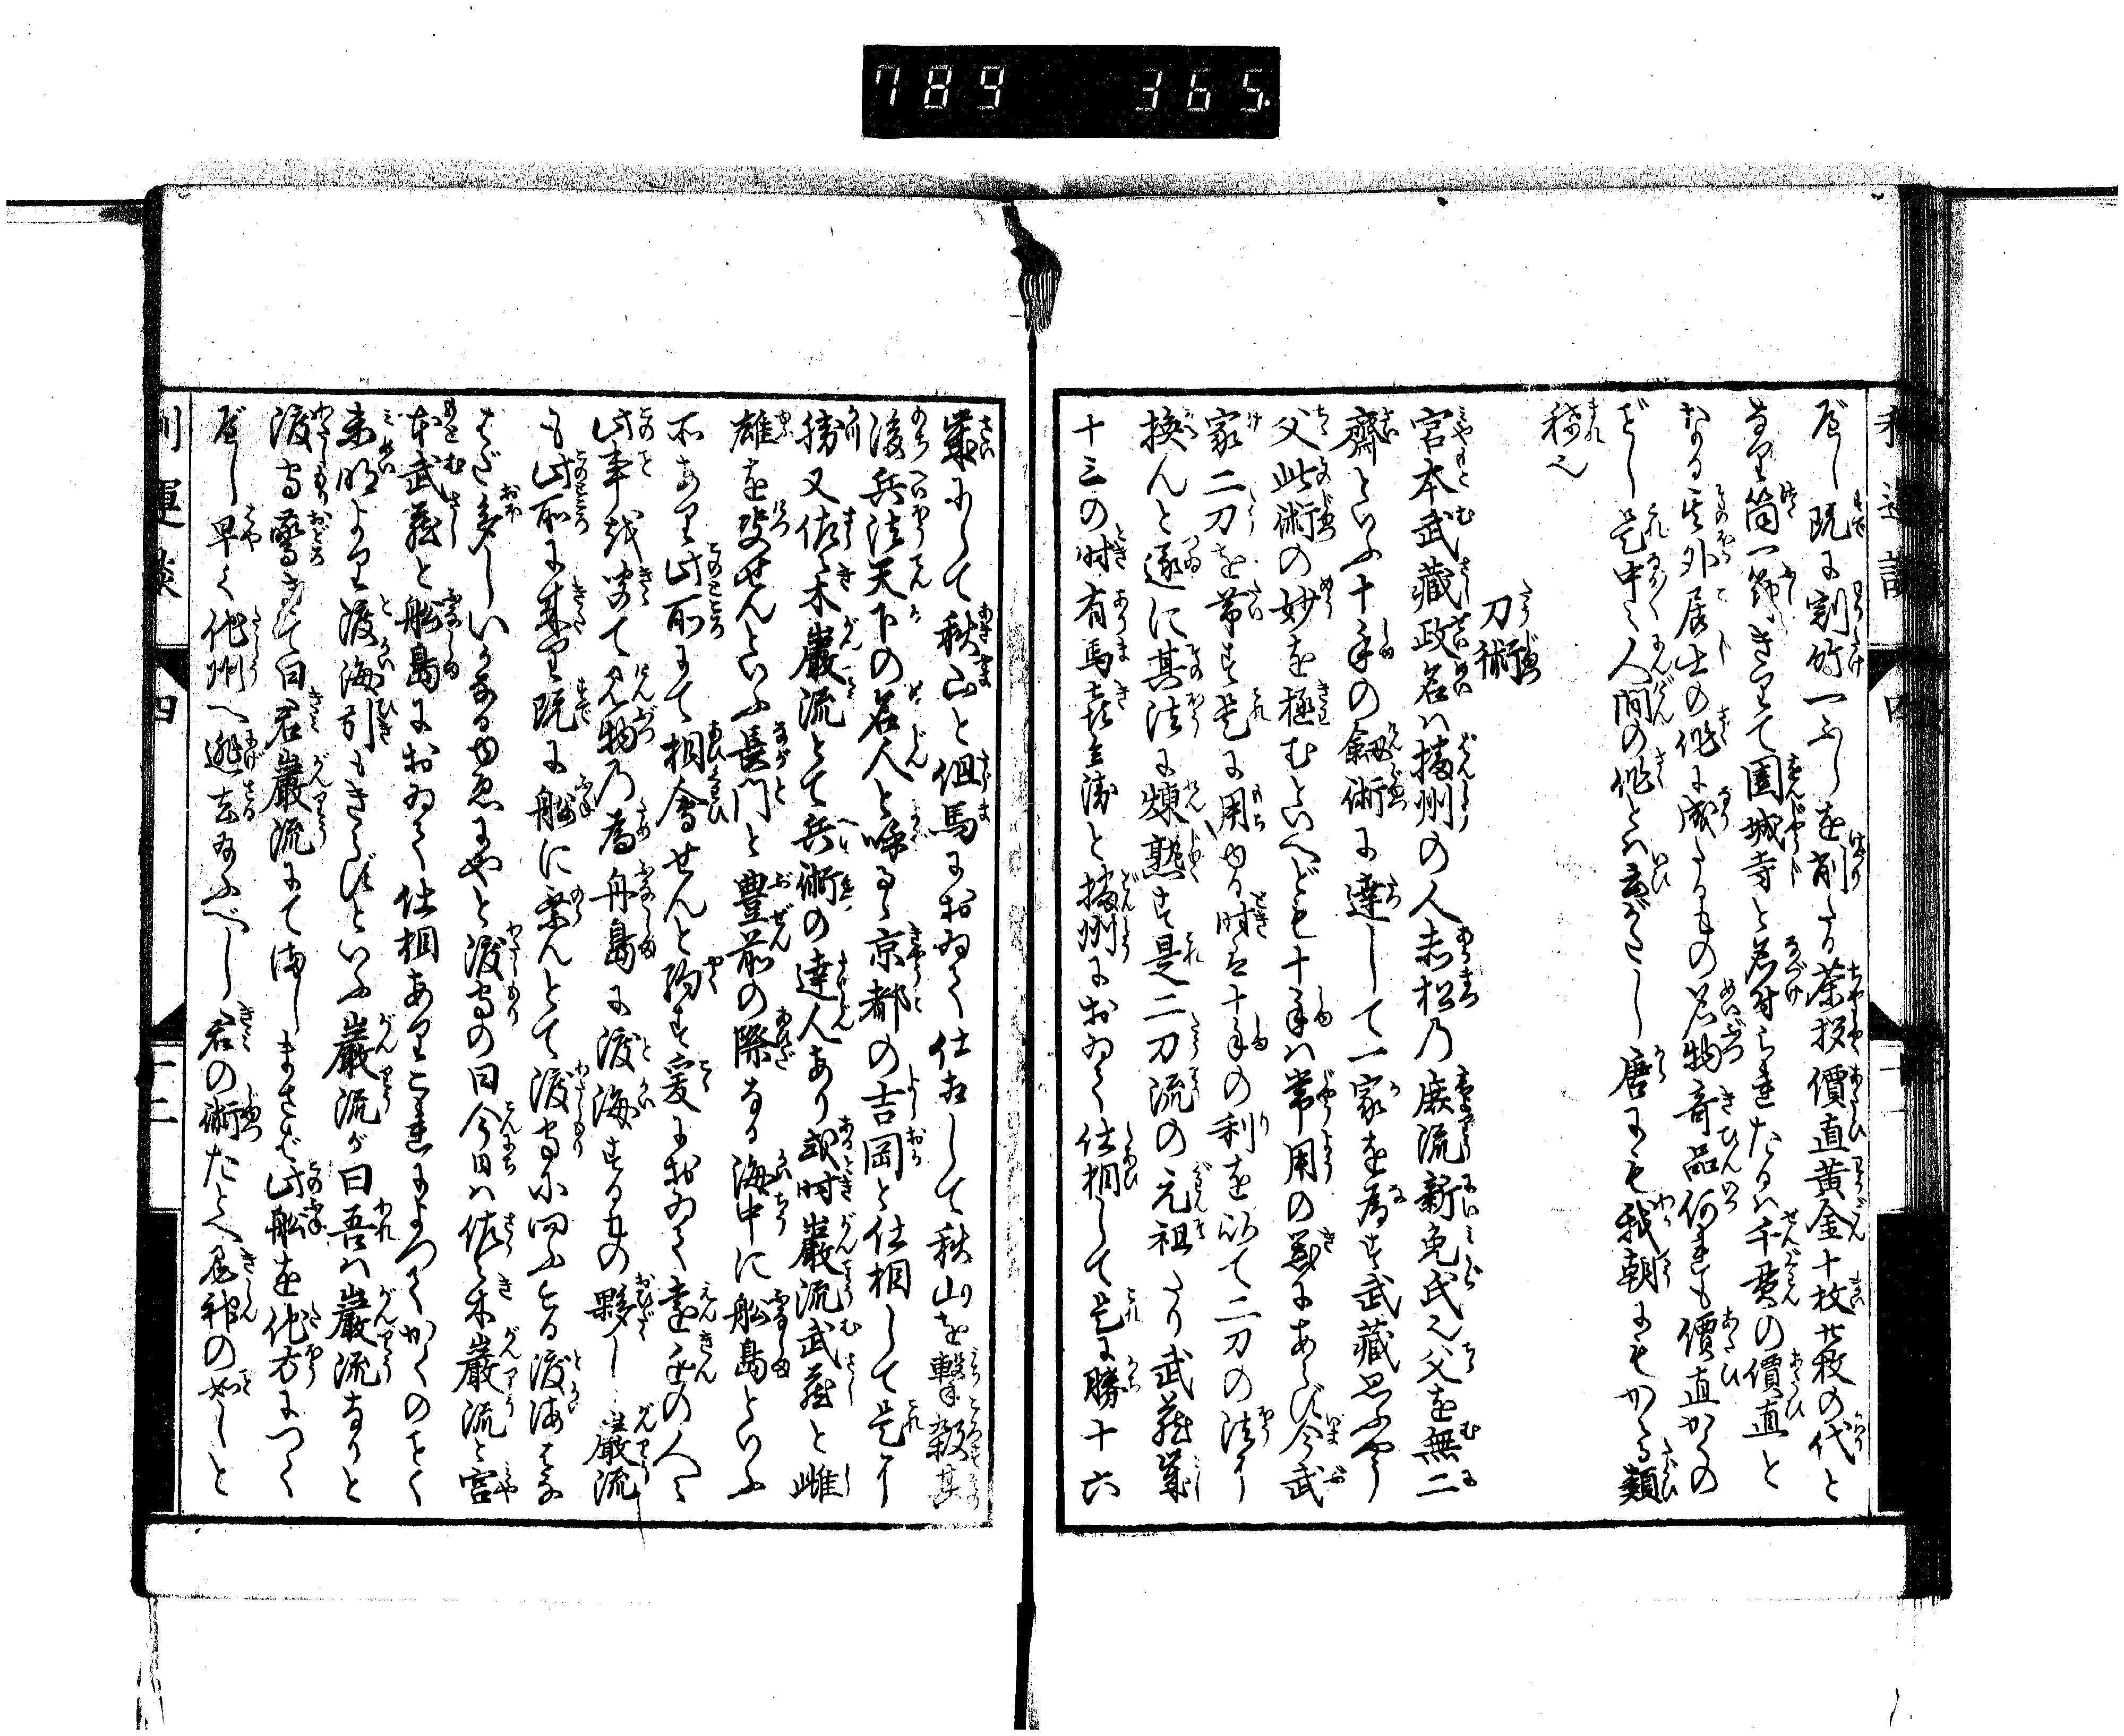 789 365
べし既に割竹一ふしを削りたる茶杓價直黄金十枚廿枚の代と
なり筒一節きりて園城寺と名付られたるハ千貫の價直と
なる其外居士の作に成たるもの名物奇品何れも價直かくの
ごとし是中々人間の作とハ云がたし唐にも我朝にもかゝる類
稀也
刀術
宮本武藏政名ハ播州の人赤松乃庶流新免氏也父を無二
齋といふ十手の劔術に達して一家を為す武藏思ふやう
父此術の妙を極むといへども十手ハ常用の器にあらず今武
家二刀を帯す是に用ゆる時は十手の利を以て二刀の法に
換んと遂に其法に煉熟す是二刀流の元祖たり武藏歳
十三の时有馬喜兵衛と播州におゐて仕相して是に勝十六
歳にして秋山と但馬におゐて仕相して秋山を擊殺其
後兵法天下の名人と呼るゝ京都の吉岡と仕相して是に
勝又佐々木巖流とて兵術の達人あり或时巖流武藏と雌
雄を決せんといふ長門と豊前の際なる海中に舩島といふ
所あり此所にて相會せんと約す爰におゐて遠近の人々
此事を聞て見物乃為舟島に渡海するもの夥し巖流
も此所に来り既に舩に乗んとて渡守に问ふ今日渡海はな
はだ多しいかなるゆゑにやと渡守の曰今日ハ佐々木巖流と宮
本武藏と舩島におゐて仕相ありこれによつてかくのごとく
未明より渡海引もきらずといふ巖流が曰吾ハ巖流なりと
渡守驚きて曰君巖流にて渉しまさば此舩を他方につく
べし早く他州へ逃去給ふべし君の術たとへ鬼神の如しと
刊運談 四 十二